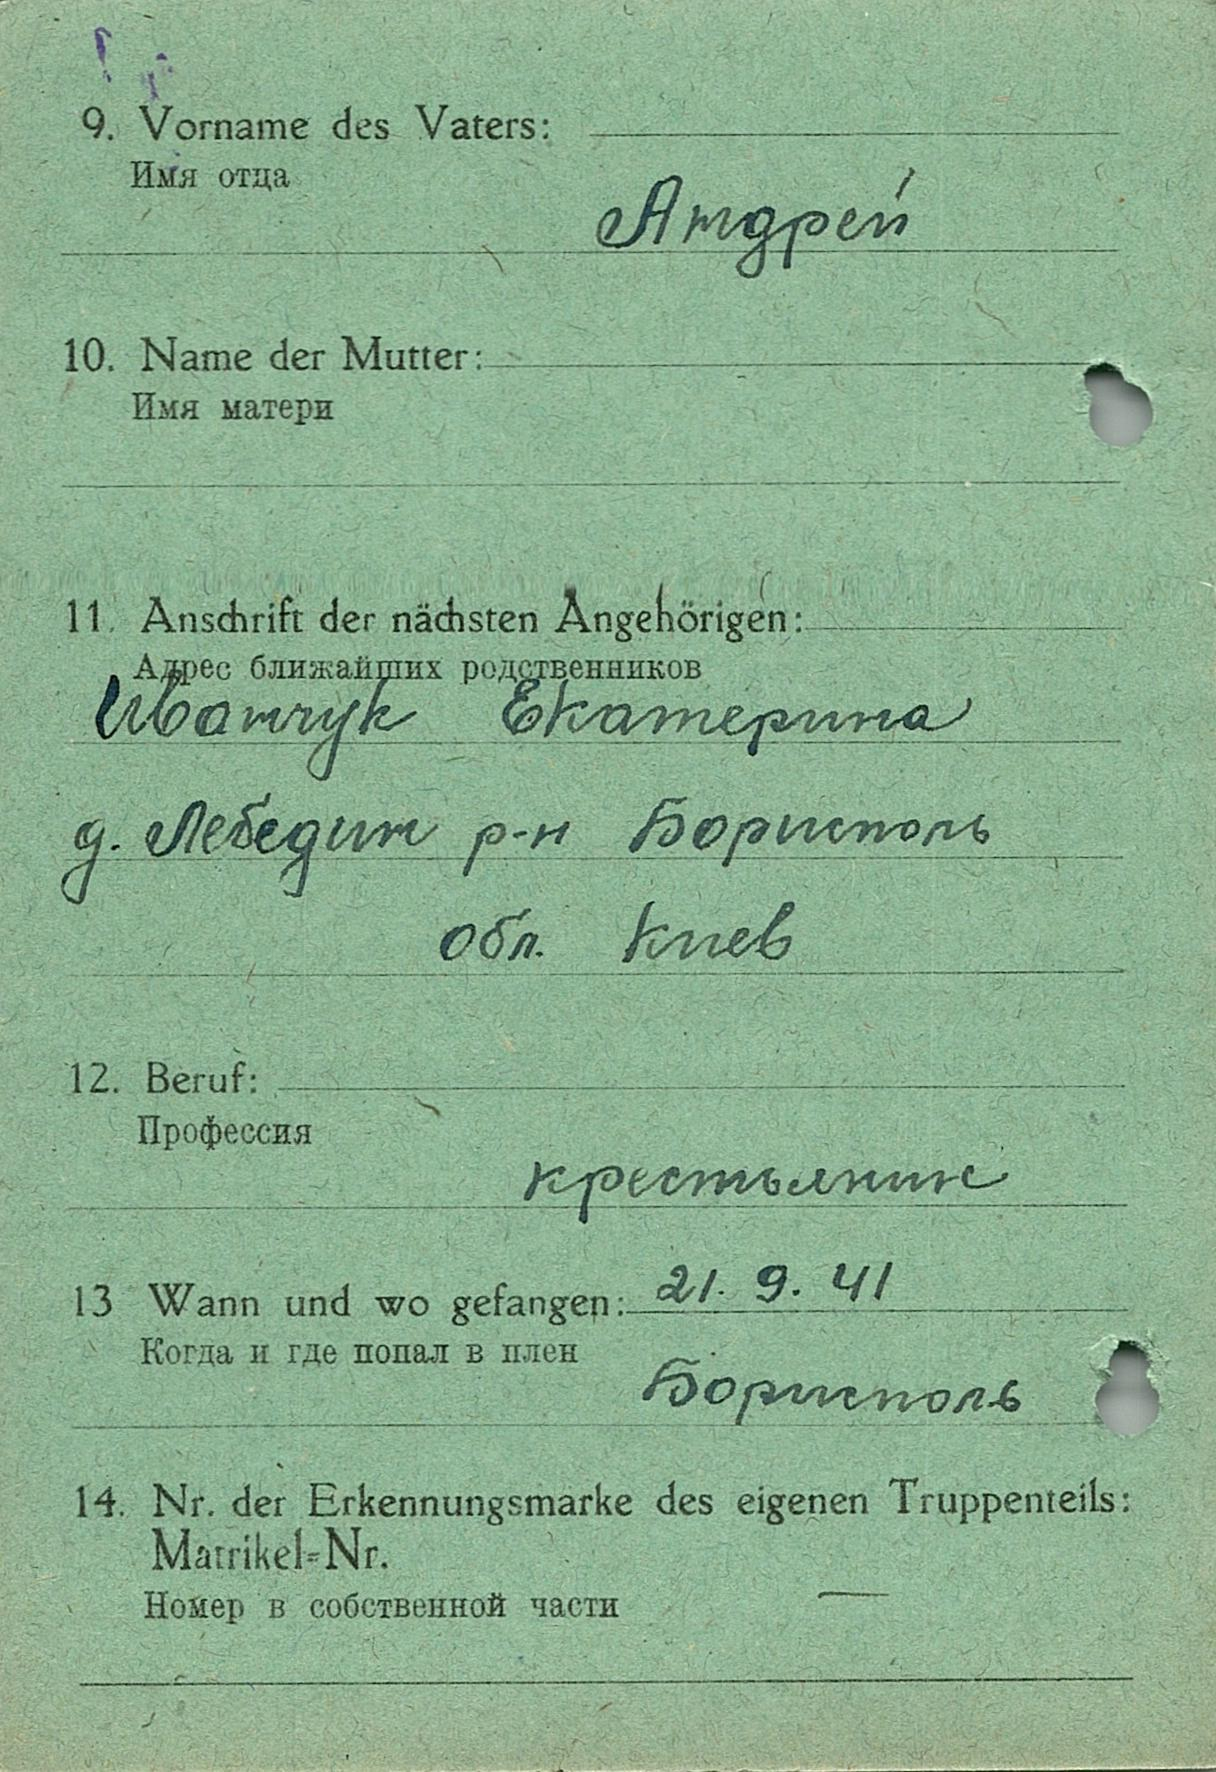 9. Vorname des Vaters:
Имя отца
Андрей
10. Name der Mutter:
Имя матери
11. Anschrift der nächsten Angehörigen:
Адрес ближайших родственников
Иванчук Екатерина
д. Лебедин р-н Борисполь
обл. Киев
12. Beruf:
Профессия
крестьянин
13 Wann und wo gefangen: 21. 9. 41
Когда и где попал в плен
Борисполь
14. Nr. der Erkennungsmarke des eigenen Truppenteils:
Matrikel=Nr.
Номер в собственной части —